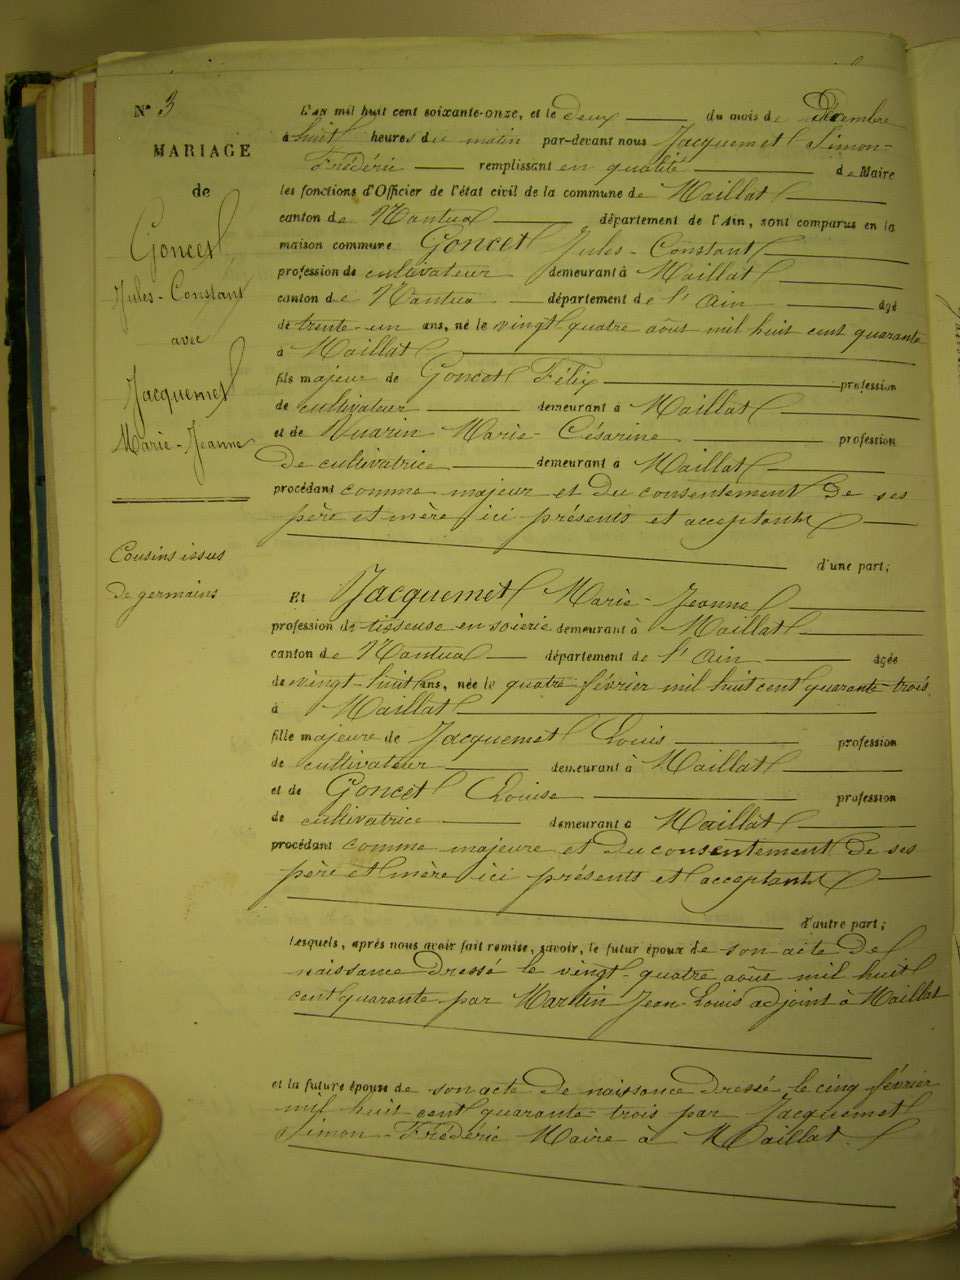 N° 3
MARIAGE
de
Goncet
Jules-Constant
avec
Jacquemet
Marie-Jeanne
Cousins issus
de germains
L'an mil huit cent soixante-onze, et le deux du mois de Décembre
à huit heures du matin par-devant nous Jacquemet Simon-
Frédéric remplissant en qualité de Maire
les fonctions d'Officier de l'état civil de la commune de Maillat
canton de Nantua département de l'Ain, sont comparus en la
maison commune Goncet Jules-Constant
profession de cultivateur demeurant à Maillat
canton de Nantua département de l'Ain âgé
de trente-un ans, né le vingt quatre aôus mil huit cent quarante
à Maillat
fils majeur de Goncet Félix profession
de cultivateur demeurant à Maillat
et de Marie-Césarine profession
De cultivatrice demeurant à Maillat
procédant comme majeur et du consentement de ses
père et mère ici présents et acceptants
d'une part;
Et Jacquemet Marie-Jeanne
profession de tisseuse en soierie demeurant à Maillat
canton de Nantua département de l'Ain âgée
de vingt-huit ans, née le quatre février mil huit cent quarante-trois
à Maillat
fille majeure de Jacquemet Louis profession
de cultivateur demeurant à Maillat
et de Goncet Louise profession
de cultivatrice demeurant à Maillat
procédant comme majeure et du consentement de ses
père et mère ici présents et acceptants
d'autre part;
Lesquels, après nous avoir fait remise, savoir, le futur époux de son acte de
naissance dressé le vingt-quatre aôus mil huit
cent quarante par Martin Jean-Louis adjoint à Maillat
et la future épouse de son acte de naissance dressé le cinq février
mil huit cent quarante-trois par Jacquemet
Simon-Frédéric Maire à Maillat